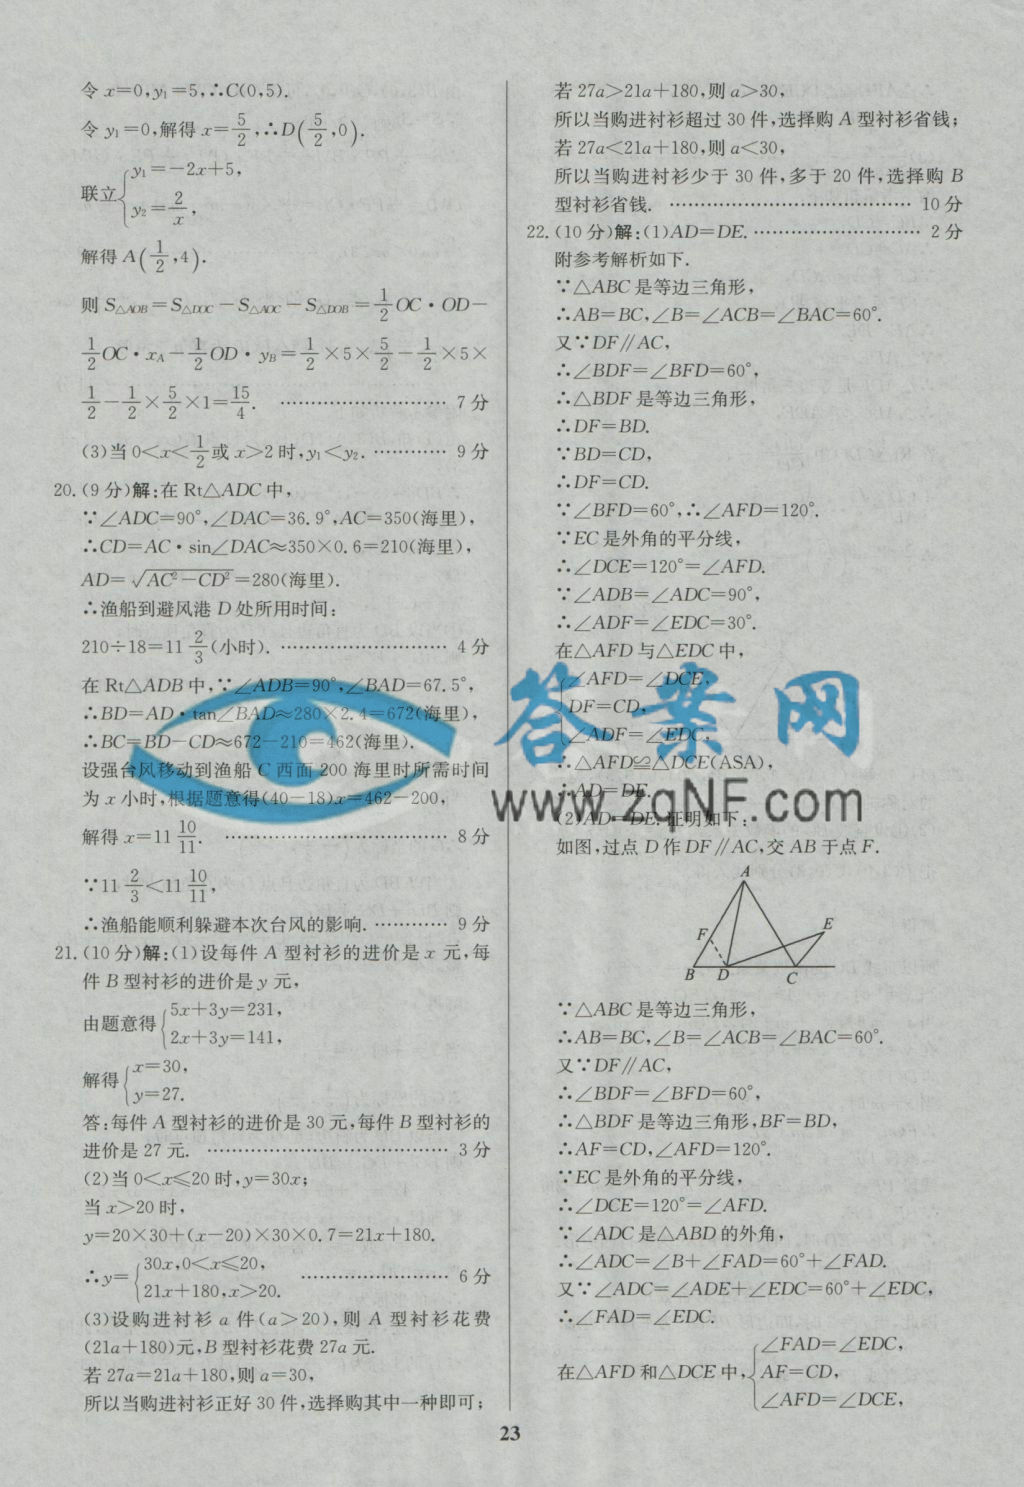 令 x=0,y₁=5,∴C(0,5).
令 y₁=0,解得 x=5/2,∴D(5/2,0).
联立{y₁=-2x+5,
y₂=2/x,
解得 A(1/2,4).
则 S△AOB=S△DOC-S△AOC-S△DOB=1/2OC·OD-
1/2OC·xA-1/2OD·yB=1/2×5×5/2-1/2×5×
1/2-1/2×5/2×1=15/4. ………………………… 7 分
(3)当 0<x<1/2或 x>2 时,y₁<y₂. ………… 9 分
20. (9 分)解:在 Rt△ADC 中,
∵∠ADC=90°,∠DAC=36.9°,AC=350(海里),
∴CD=AC·sin∠DAC≈350×0.6=210(海里),
AD=√(AC²-CD²)=280(海里).
∴渔船到避风港 D 处所用时间:
210÷18=11 2/3(小时). ………………………… 4 分
在 Rt△ADB 中,∵∠ADB=90°,∠BAD=67.5°,
∴BD=AD·tan∠BAD≈280×2.4=672(海里),
∴BC=BD-CD≈672-210=462(海里).
设强台风移动到渔船 C 西面 200 海里时所需时间
为 x 小时,根据题意得(40-18)x=462-200,
解得 x=11 10/11. ………………………………… 8 分
∵11 2/3<11 10/11,
∴渔船能顺利躲避本次台风的影响. ………… 9 分
21. (10 分)解:(1)设每件 A 型衬衫的进价是 x 元,每
件 B 型衬衫的进价是 y 元,
由题意得{5x+3y=231,
2x+3y=141,
解得{x=30,
y=27.
答:每件 A 型衬衫的进价是 30 元,每件 B 型衬衫的
进价是 27 元. …………………………………… 3 分
(2)当 0<x≤20 时,y=30x;
当 x>20 时,
y=20×30+(x-20)×30×0.7=21x+180.
∴y={30x,0<x≤20,
21x+180,x>20. ……………………… 6 分
(3)设购进衬衫 a 件(a>20),则 A 型衬衫花费
(21a+180)元,B 型衬衫花费 27a 元.
若 27a=21a+180,则 a=30,
所以当购进衬衫正好 30 件,选择购其中一种即可;
若 27a>21a+180,则 a>30,
所以当购进衬衫超过 30 件,选择购 A 型衬衫省钱;
若 27a<21a+180,则 a<30,
所以当购进衬衫少于 30 件,多于 20 件,选择购 B
型衬衫省钱. ………………………………… 10 分
22. (10 分)解:(1)AD=DE. ……………………… 2 分
附参考解析如下.
∵△ABC 是等边三角形,
∴AB=BC,∠B=∠ACB=∠BAC=60°.
又∵DF∥AC,
∴∠BDF=∠BFD=60°,
∴△BDF 是等边三角形,
∴DF=BD.
∵BD=CD,
∴DF=CD.
∵∠BFD=60°,∴∠AFD=120°.
∵EC 是外角的平分线,
∴∠DCE=120°=∠AFD.
∵∠ADB=∠ADC=90°,
∴∠ADF=∠EDC=30°.
在△AFD 与△EDC 中,
{∠AFD=∠DCE,
DF=CD,
∠ADF=∠EDC,
∴△AFD≌△DCE(ASA),
∴AD=DE.
(2)AD=DE.证明如下:
如图,过点 D 作 DF∥AC,交 AB 于点 F.
A
F
E
B D C
∵△ABC 是等边三角形,
∴AB=BC,∠B=∠ACB=∠BAC=60°.
又∵DF∥AC,
∴∠BDF=∠BFD=60°,
∴△BDF 是等边三角形,BF=BD,
∴AF=CD,∠AFD=120°.
∵EC 是外角的平分线,
∴∠DCE=120°=∠AFD.
∵∠ADC 是△ABD 的外角,
∴∠ADC=∠B+∠FAD=60°+∠FAD.
又∵∠ADC=∠ADE+∠EDC=60°+∠EDC,
∴∠FAD=∠EDC.
在△AFD 和△DCE 中,{∠FAD=∠EDC,
AF=CD,
∠AFD=∠DCE,
23
答案网
www.zqNF.com